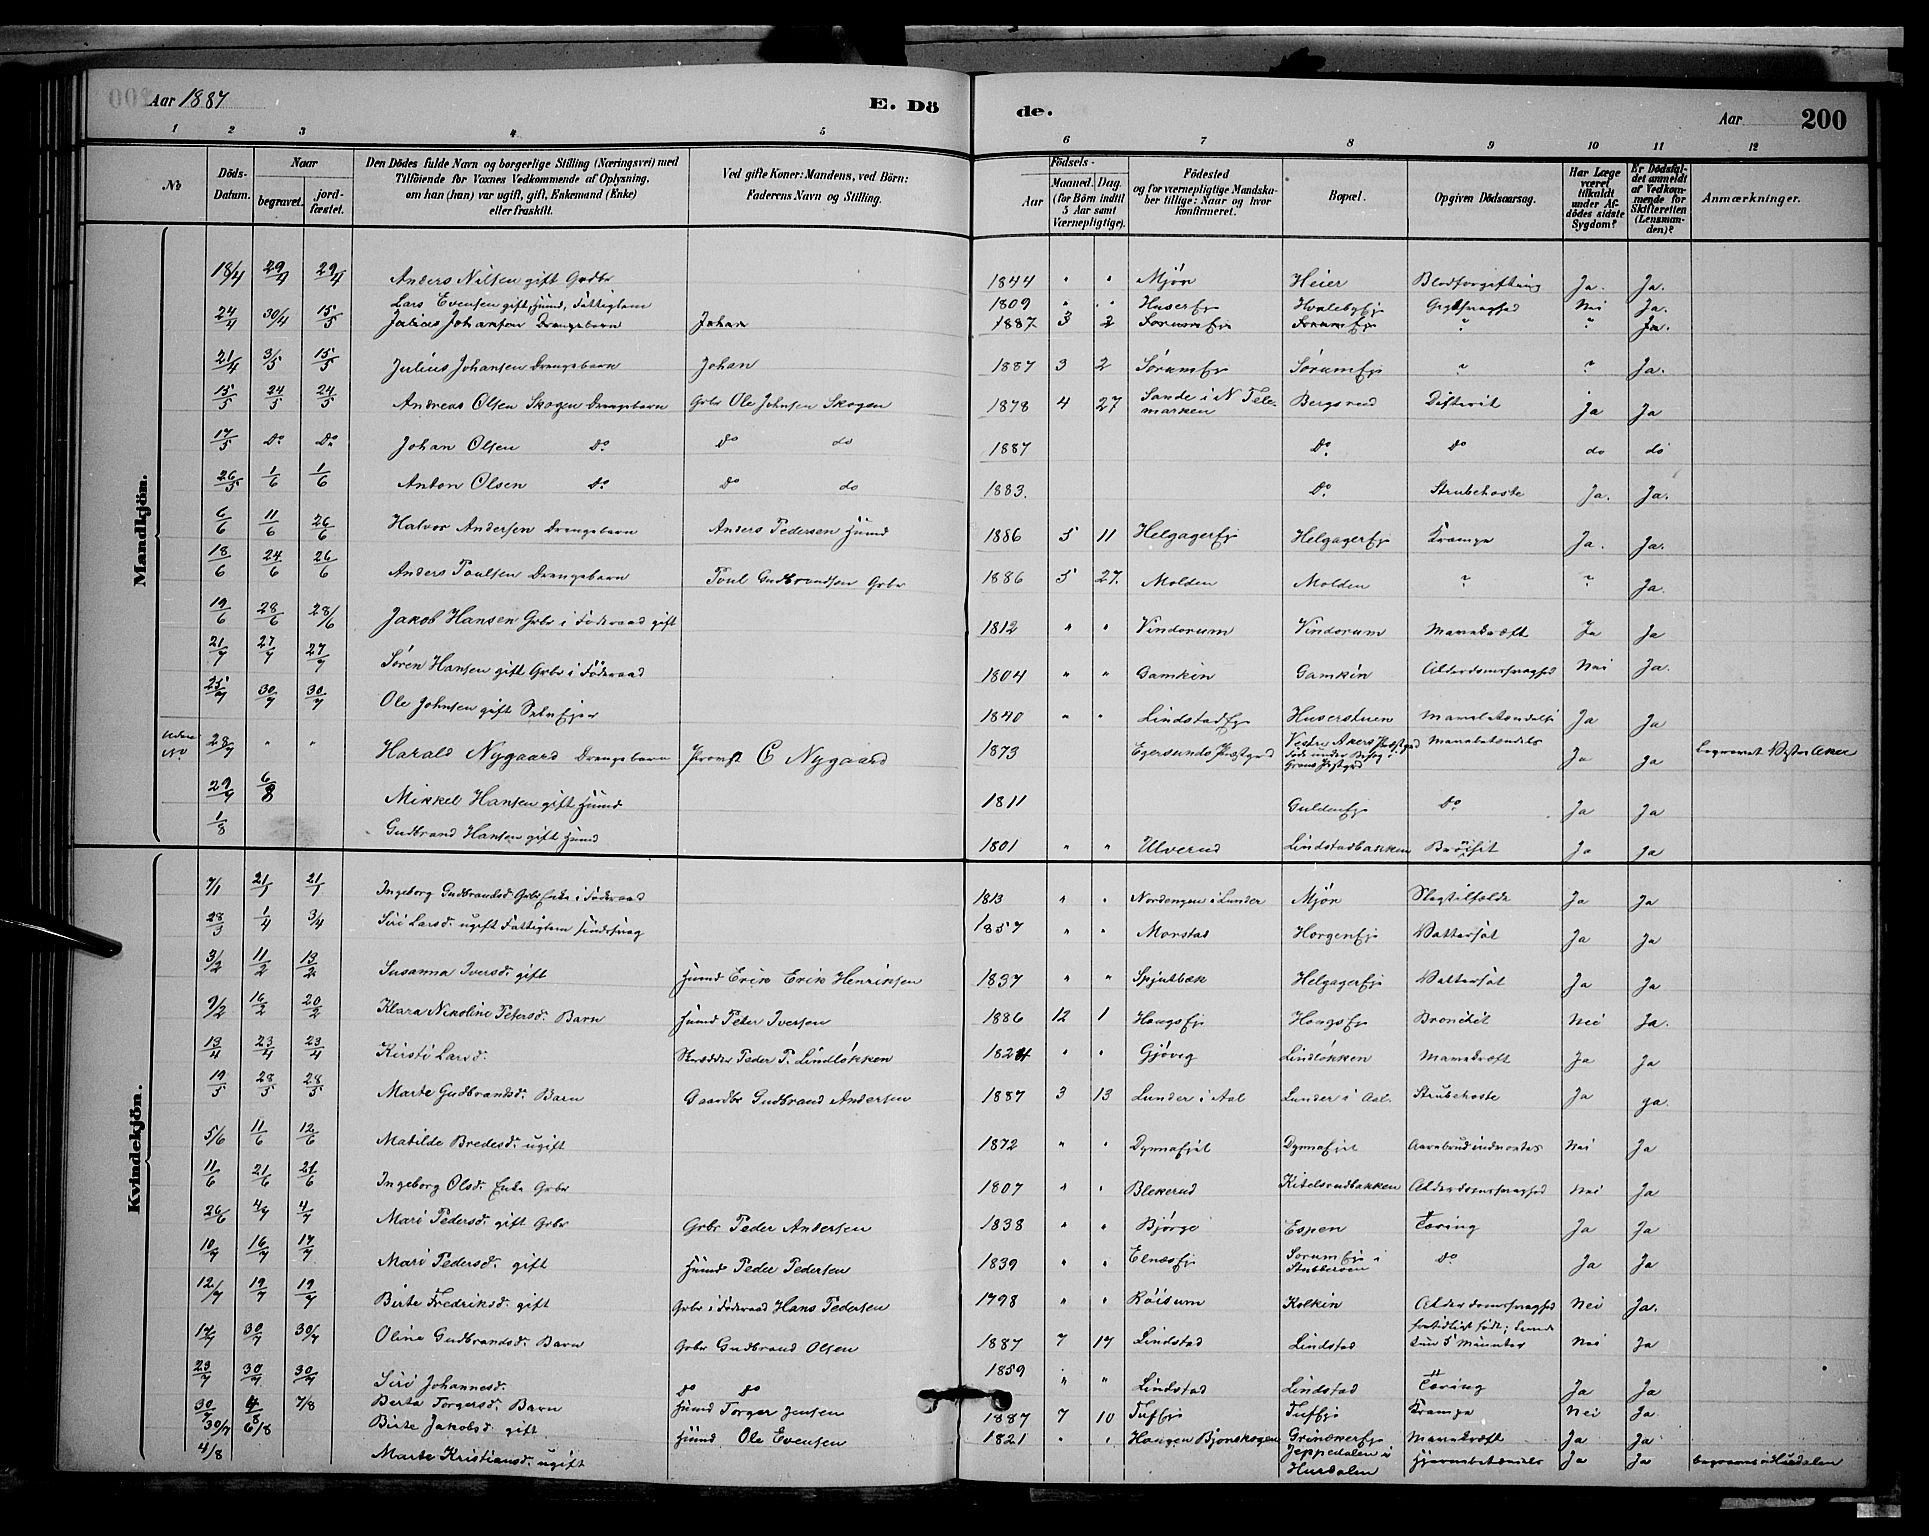 Aar 1887 E. Dö de. Aar 200
1 2 3 4 5 6 7 8 9 10 11 12
No
Döds-Datum.
Naar
begravet.
jord-fæstet.
Den Dödes fulde Navn og borgerlige Stilling (Næringsvei) med
Tilföiende for Voxnes Vedkommende af Oplysning,
om han (hun) var ugift, gift, Enkemand (Enke)
eller fraskilt.
Ved gifte Koner: Mandens, ved Börn:
Faderens Navn og Stilling.
Födsels-
Aar
Maaned. Dag.
(for Börn indtil
5 Aar samt
Værnepligtige).
Födested
og for værnepligtige Mandska-
ber tillige: Naar og hvor
konfirmeret.
Bopæl.
Opgiven Dödsaarsag.
Har Læge
været
tilkaldt
under Af-
dödes sidste
Sygdom?
Er Dödsfal-
det anmeldt
af Vedkom-
mende for
Skifteretten
(Lensman-
den)?
Anmærkninger.
Mandkjön.
18/4 29/4 29/4 Anders Nilsen gift Grdbr 1844 " " Mjør Heier Blodforgiftning Ja. Ja.
Lars Evensen gift, Huusmd, Fattiglem 1809 " " Huserje Hvalebyeje Gigtsvaghed Nei Ja.
24/4 30/4 15/5 Julius Johansen Drengebarn Johan 1887 3 2 Sørumeje Sørumeje " " Ja.
21/4 3/5 15/5 Julius Johansen Drengebarn Johan 1887 3 2 Sørumeje Sørumeje " " Ja.
15/5 24/5 24/5 Andreas Olsen Skogen Drengebarn Grbr Ole Johnsen Skogen 1878 4 27 Sande i N Tele-marken Bergsrud Difterit Ja Ja
17/5 Do Do Johan Olsen Do Do do 1887 Do Do do do
26/5 1/6 1/6 Anton Olsen Do Do do 1883. Do Strubehoste Ja. Ja.
6/6 11/6 26/6 Halvor Andersen Drengebarn Anders Pedersen Huusmd 1886 5 11 Helgagereje Helgagereje Krampe Ja. Ja.
18/6 24/6 26/6 Anders Poulsen Drengebarn Poul Gudbrandsen Grbr 1886 5 27. Molden Molden " " Ja.
19/6 28/6 28/6 Jakob Hansen Grbr i Föderaad gift 1812 " " Vindorum Vindorum Mavekræft Ja Ja
21/7 27/7 27/7 Søren Hansen gift Grbr i Föderaad 1804 " " Gamkin Gamkin Alderdomssvaghed Nei Ja.
25/7 30/7 30/7 Ole Johnsen gift Selveier 1840 " " Lindstadeje Huserstuen Ja Ja
Uden No 28/7 " " Harald Nygaard Drengebarn Provst C Nygaard 1873 Egersunds Præstgjd Vestre Akers Præstgjd
Grans Præstgjd Ja Ja begravet i Vestre Aker
29/7 6/8 Mikkel Hansen gift Huusmd 1811 Guldeneje Do Ja Ja
1/8 Gudbrand Hansen gift Huusmd 1801 " " Ulverud Lindstadbakken Ja Ja
Kvindekjön.
7/1 21/1 21/1 Ingeborg Gudbrandsd. Grbr Enke i Föderaad 1813 " " Nordengen i Lunder Mjør Slagtilfælde Ja Ja
28/3 1/4 3/4 Siri Larsd. ugift Fattiglem sindssvag 1857 " " Morstad Horgeneje Vattersot Ja Ja
3/2 11/2 13/2 Susanna Iversd. gift Huusmd Erik Erik Henriksen 1837 " " Spjutbæk Helgagereje Vattersot Ja Ja
9/2 16/2 20/2 Klara Nikoline Petersd. Barn Huusmd Peter Iversen 1886 12 1 Haugseje Haugseje Bronchit Nei Ja.
13/4 23/4 23/4 Kirsti Larsd. Skrædder Peder P. Lindløkken 1824 " " Gjøvig Lindløkken Mavekræft Ja Ja
19/5 28/5 28/5 Marte Gudbrandsd. Barn Gaardbr Gudbrand Andersen 1887 3 13 Lunder i Aal Lunder i Aal. Strubehoste Ja ja.
5/6 11/6 12/6 Matilde Bredesd. ugift 1872 " " Dynnaejet Dynnaejet Nei Ja
11/6 21/6 21/6 Ingeborg Olsd. Enke Grbr 1807 " " Blekerud Kitelsrudbakken Alderdomssvaghed Nei Ja
26/6 4/7 4/7 Mari Pedersd. gift Grbr Grbr Peder Andersen 1838 " " Bjørge Espen Tæring Ja Ja
10/7 16/7 17/7 Mari Pedersd. gift Huusmd Peder Pedersen 1839 " " Elnæseje Sørumeje i
Do Ja Ja
12/7 19/7 19/7 Birte Fredriksd. gift Grbr i Föderaad Hans Pedersen 1798 " " Røisum Kolkin Alderdomssvaghed Nei Ja.
17/7 30/7 30/7 Oline Gudbrandsd. Barn Grbr Gudbrand Olsen 1887 7 17 Lindstad Lindstad fortidligt født; levede
kun 5 Minuter Nei Ja
23/7 30/7 30/7 Siri Johannesd. Do Do 1859 " " Lindstad Lindstad Tæring Ja Ja
30/7 4/8 7/8 Berta Torgersd. Barn Huusmd Torger Jensen 1887 7 10 Tufeje Tufeje Krampe Nei Ja
30/7 6/8 Birte Jakobsd. gift Huusmd Ole Evensen 1821 " " Haugen Bjonskogen Grinakereje Mavekræft Ja Ja
4/8 Marte Kristiansd. ugift Jeppedalen i
Hurdalen Hjernebetændelse Ja Ja begravet i Hurdalen